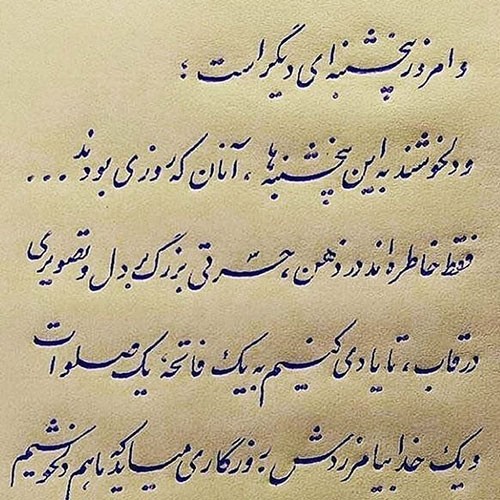 و امروز پنجشنبه ای دیگر است ؛
و دلخوشند به این پنجشنبه ها ، آنان که روزی بودند ...
فقط خاطره اند در ذهن ، حسرتی بزرگ بر دل و تصویری
در قاب ، تا یادی کنیم به یک فاتحه ، یک صلوات
و یک خدا بیامرزدش به روزگاری میاید که ما هم دلخوشیم